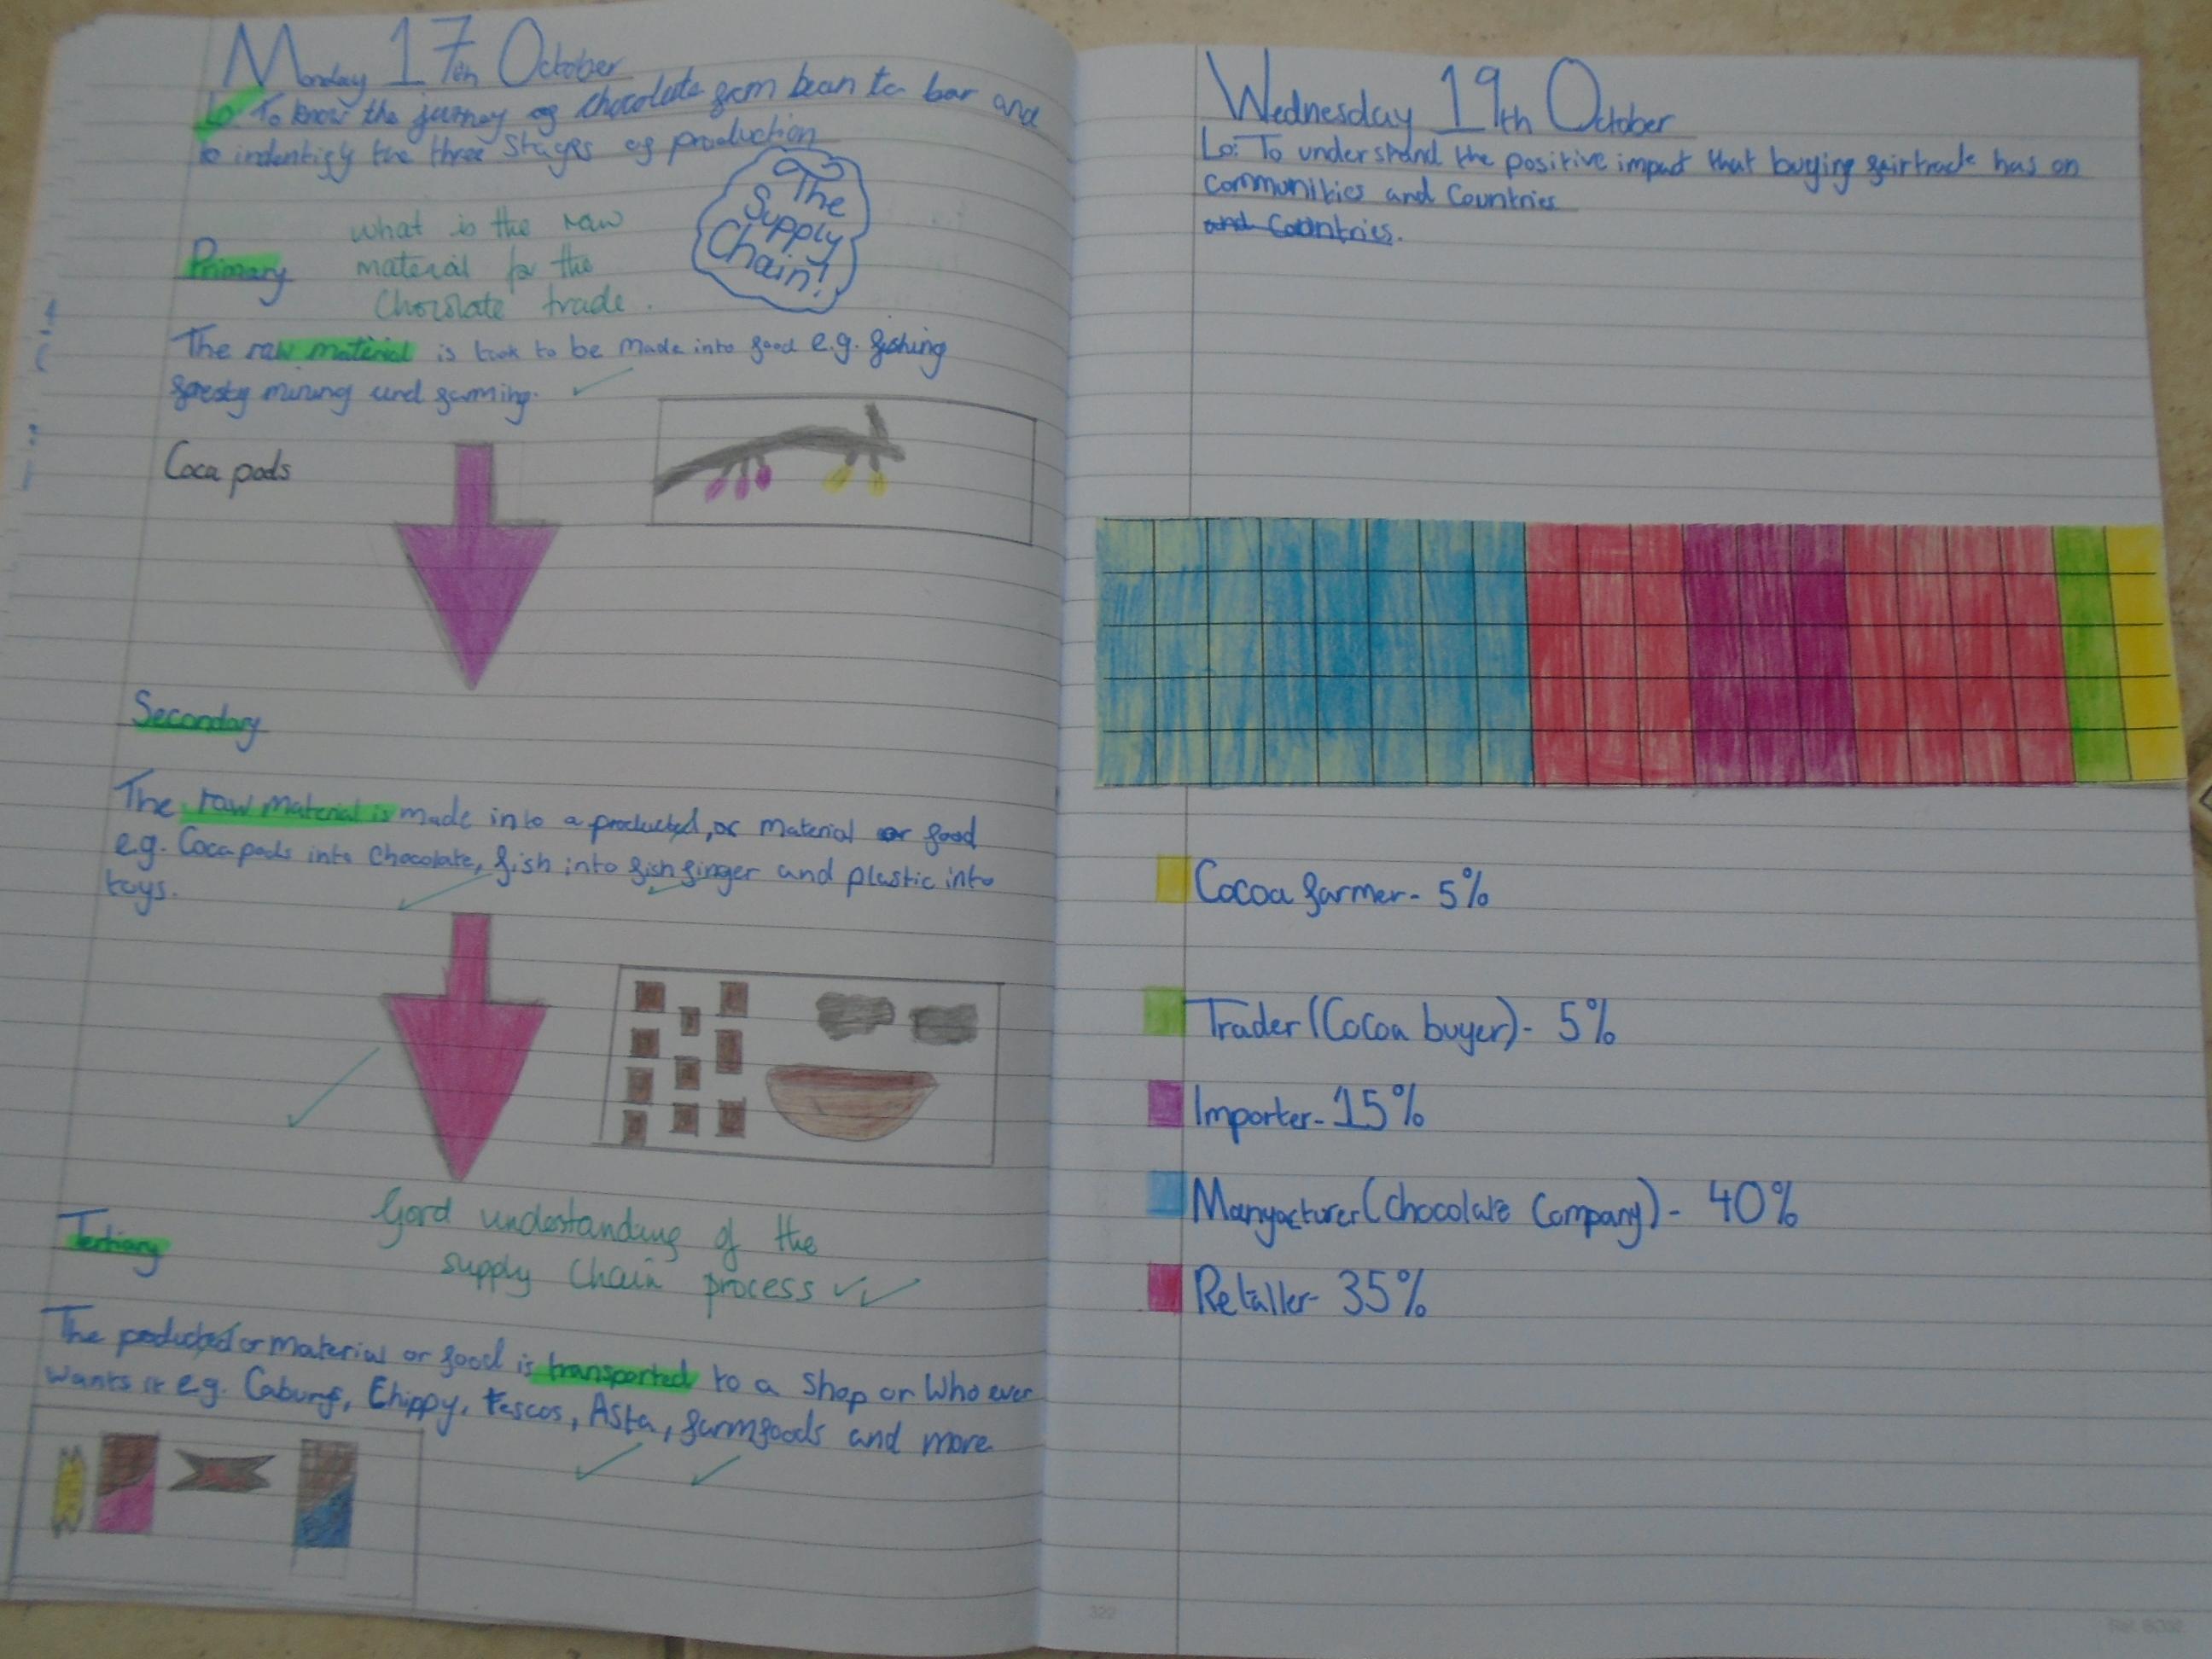 Monday 17th October
Lo To know the journey of chocolate from bean to bar and
to indentify the three stages of production
The
Supply
Chain!
Primary
what is the raw
material for the
Chocolate trade.
The raw material is took to be made into good e.g. fishing
foresty mining and farming.
Coca pods
Secondary
The raw material is made into a producted, or material or good
e.g. Coca pods into chocolate, fish into fish finger and plastic into
toys.
Good undestanding of the
supply chain process
Tertiary
The producted or material or good is transported to a shop or who ever
wants it e.g. Chippy, tescos, Asta, farmfoods and more
Wednesday 19th October
Lo: To understand the positive impact that buying fairtrade has on
communities and Countries
and Countries.
Cocoa farmer - 5%
Trader (Cocoa buyer) - 5%
Importer - 15%
Manyacturer (chocolate Company) - 40%
Retailler - 35%